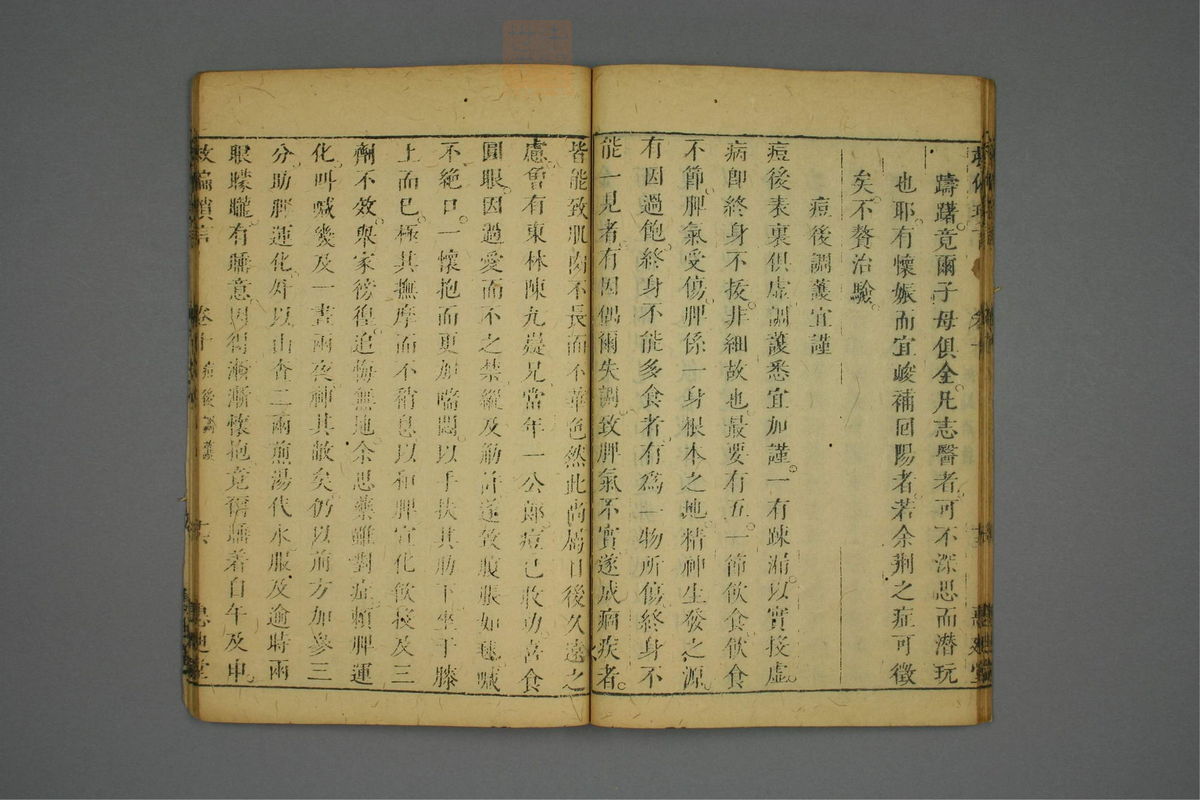 躊躇竟爾子母俱全凡志醫者可不深思而潜玩
也耶有懷娠而宜峻補回陽者若余荆之症可徵
矣不贅治驗
痘後調護宜謹
痘後表裏俱虛調護悉宜加謹一有踈漏以實接虛
病卽終身不㧞非細故也最要有五一節飲食飲食
不節脾氣受傷脾係一身根本之地精神生發之源
有因過飽終身不能多食者有爲一物所傷終身不
能一見者有因偶爾失調致脾氣不實遂成痼疾者
皆能致肌肉不長面不華色然此尚屬日後久遠之
慮曾有東林陳九嶷兄當年一公郞痘已收功喜食
圓眼因過愛而不之禁繼及觔許遂致腹脹如毬喊
不絶口一懷抱而更加喘悶以手扶其肋下坐于膝
上而已極其撫摩而不稍息以和脾宣化飲投及三
劑不效舉家徬徨追悔無地余思藥雖對症頼脾運
化呌喊幾及一晝兩夜神其散矣仍以前方加參三
分助脾運化外以山查二兩煎湯代水服及逾時兩
眼矇矓有睡意因得漸漸懷抱竟爾睡着自午及申
救偏瑣言 卷十 痘後調護 思廸堂